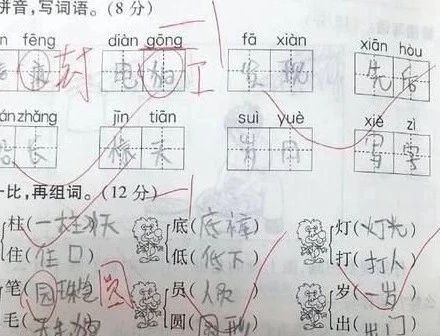 拼音,写词语。(8 分)
n fēng diàn gōng fā xiàn xiān hòu
封 电 工 发现 先后
ánzhǎng jīn tiān suì yuè xiě zì
长 今天 岁月 写字
一比,再组词。(12 分)
柱( 底(底裤) 灯(灯光)
住(住口) 低(低下) 打(打人)
笔(圆珠笔 圆 员(人员) 岁(一岁)
毛( 圆( 出(出门)